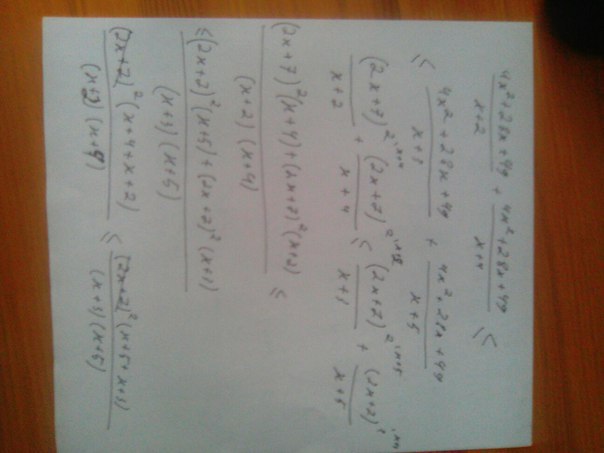 4x²+28x+49 / x+2 + 4x²+28x+49 / x+4 ≤
≤ 4x²+28x+49 / x+1 + 4x²+28x+49 / x+5
(2x+7)² \x+4 / x+2 + (2x+7)² \x+2 / x+4 ≤ (2x+7)² \x+5 / x+1 + (2x+7)² \x+1 / x+5
(2x+7)²(x+4)+(2x+7)²(x+2) / (x+2)(x+4) ≤
≤ (2x+7)²(x+5)+(2x+7)²(x+1) / (x+1)(x+5)
(2x+7)²(x+4+x+2) / (x+2)(x+4) ≤ (2x+7)²(x+5+x+1) / (x+1)(x+5)